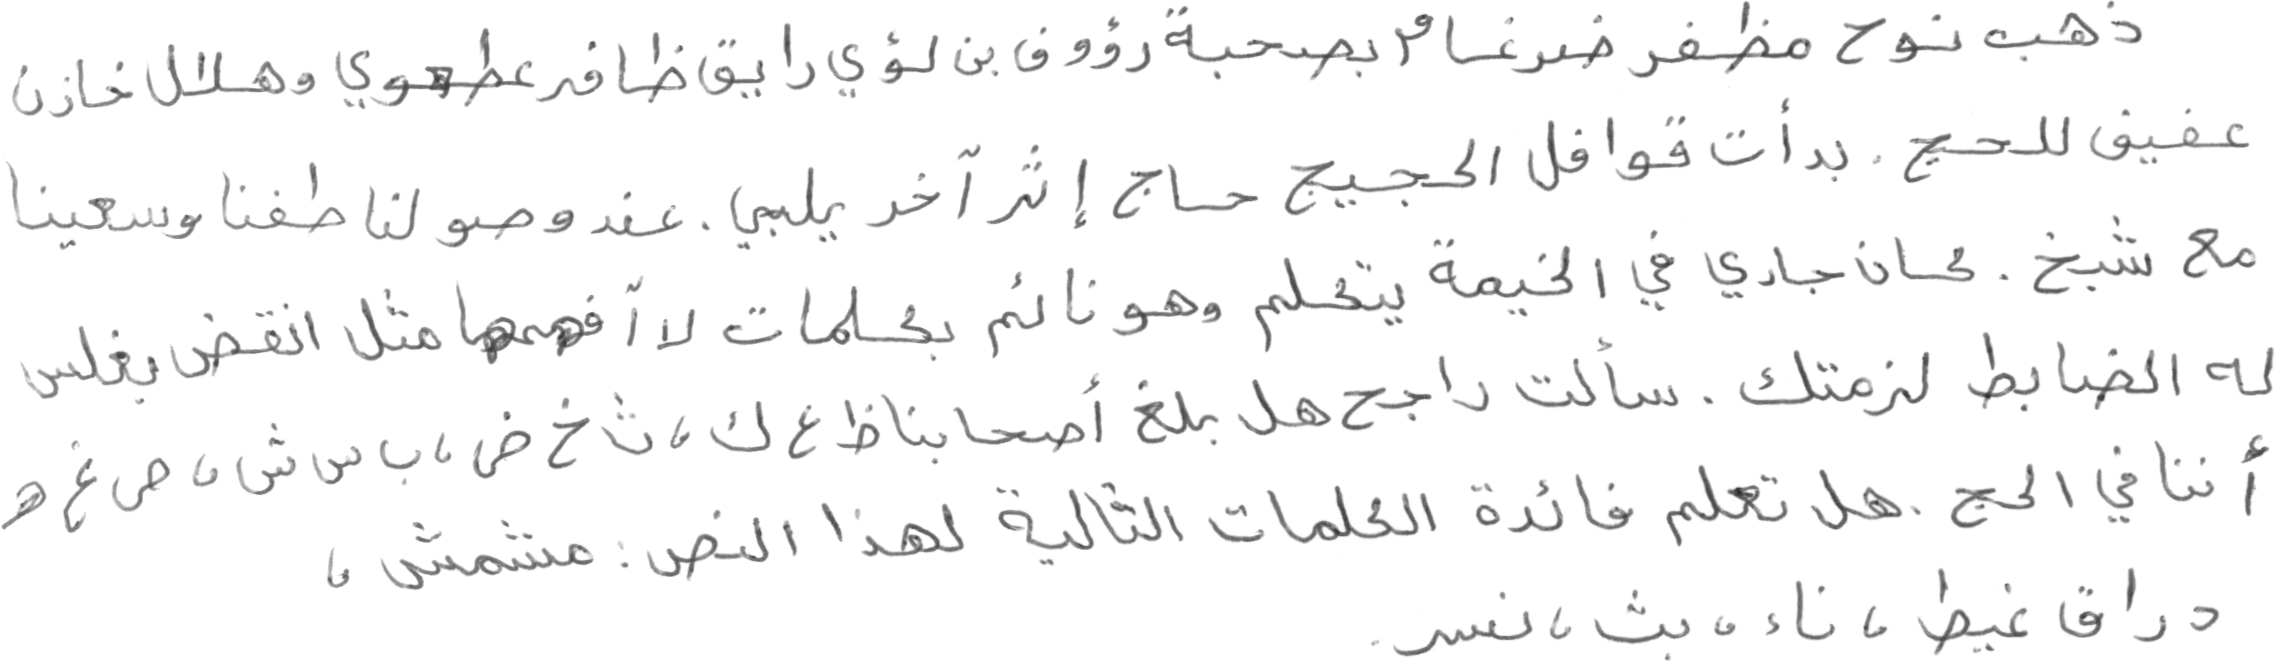 ذهب نوح مظفر ضرغام بصحبة رؤوف بن لؤي رايق ظافر عطعوي وهلال خازن
عفيف للحج . بدأت قوافل الحجيج حاج إثر آخر يلبي . عند وصولنا طفنا وسعينا
مع شيخ . كان جاري في الخيمة يتكلم وهو نائم بكلمات لا أفهمها مثل انقض يغلس
له الضابط لزمتك . سألت راجح هل بلغ أصحابنا ظ غ ك ، ث خ ض ، ب س ش ، ص غ ه
أننا في الحج . هل تعلم فائدة الكلمات التالية لهذا النص : مشمش ،
دراق غيط ، ناء ، بث ، نسر .